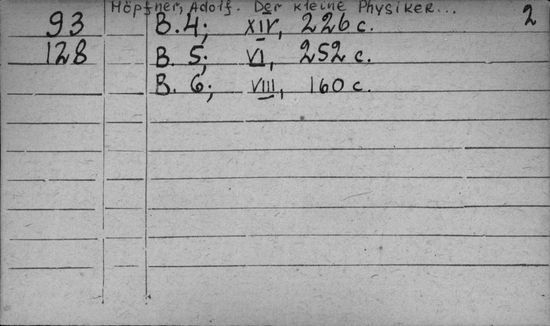 Höpfner, Adolf. Der kleine Physiker... 2
93 B. 4; XIV, 226 c.
128 B. 5; VI, 252 c.
B. 6; VIII, 160 c.